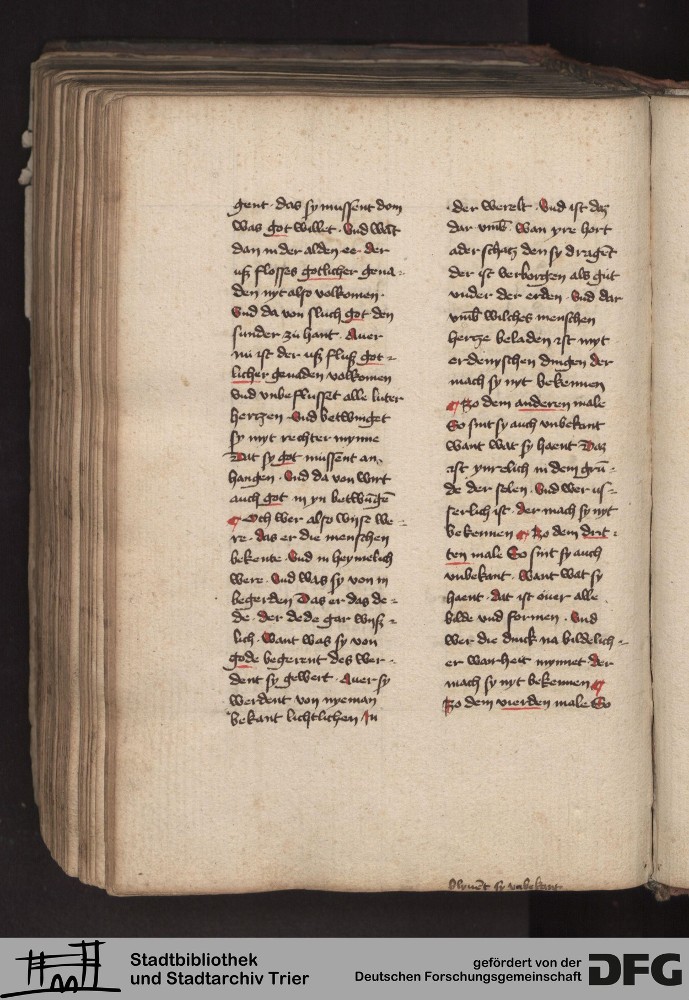 gent · das sy mussent dom
was got willet · Vnd wāt
dan in der alden ee der
usz flosses gotlicher gena-
den nyt also volkomen ·
Vnd da von fluch got den
sunder zu hant · Auer
nu ist der usz flusz got-
licher genaden volkomen
Vnd vnbeflusset alle luter
hertzen · Vnd betwinget
sy myt rechter mynne
Dat sy got mussent an
hangen · Vnd da von wirt
auch got in yn betwūgē
¶ Och wer also wijse we-
re · das er die menschen
bekente · Vnd in heymelich
were · Vnd was sy von in
begerden Das er das de-
de · der dede gar wijsz-
lich · Want was sy von
gode begerent des wer-
dent sy gewert · Auer sy
werdent von nyeman
bekant lichtlichen In
der werelt · Vnd ist daz
dar vmb wan yre hort
ader schatz den sy dragēt
der ist verborgen als gut
vnder der erden · Vnd dar
vmb wilches menschen
hertze beladen ist myt
erdenyschen dingen der
mach sy nyt bekennen
¶ Zo dem anderen male
So sint sy auch vnbekant
want wat sy haent Daz
ist ynrelich in dem grū-
de der selen · Vnd wer us-
serlich ist · der mach sy nyt
bekennen ¶ Zo dem drit-
ten male So sint sy auch
vnbekant · Want wat sy
haent · dat ist ouer alle
bilde vnd formen · Vnd
wer die dinck na bildelich-
er warheit mynnet der
mach sy nyt bekennen ¶
Zo dem vierden male So
sy vnbekant
Stadtbibliothek
und Stadtarchiv Trier
gefördert von der
Deutschen Forschungsgemeinschaft
DFG